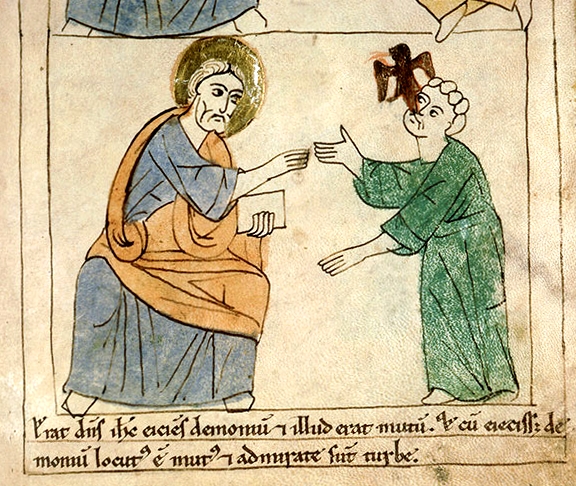 Erat dn̄s ih̄c eiciēs demoniū ⁊ illud erat mutū. ⁊ cū eiecissꝫ de
moniū locutꝰ ē mutꝰ ⁊ admirate sūt turbe.